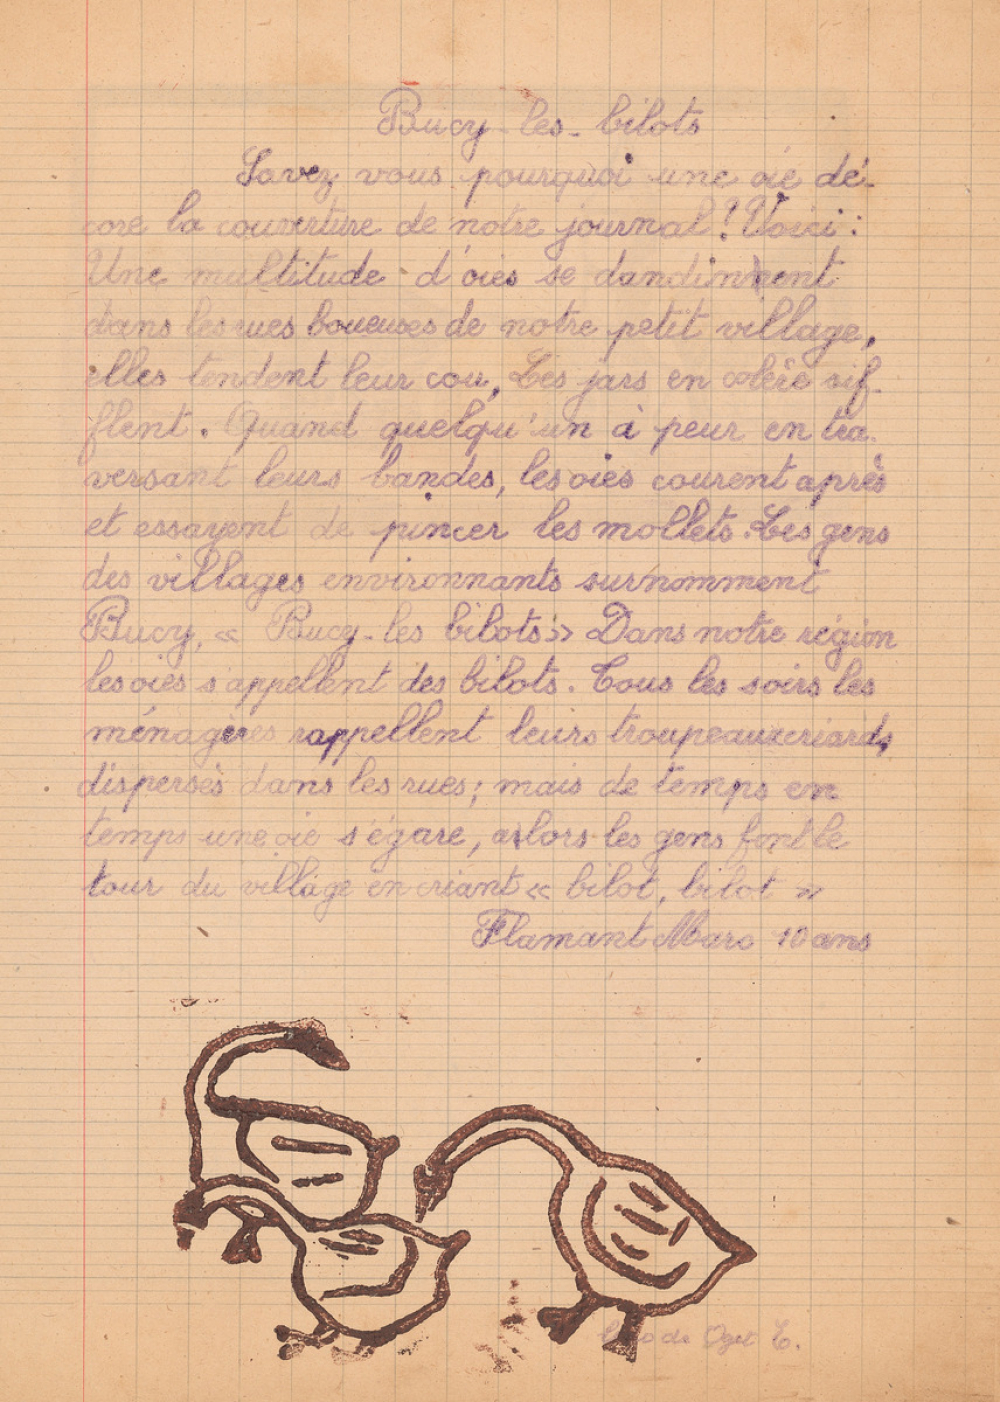 Bucy-les-bilots
Savez vous pourquoi une oie dé-
core la couverture de notre journal? Voici:
Une multitude d'oies se dandinnent
dans les rues boueuses de notre petit village,
elles tendent leur cou, Les jars en colère sif-
flent. Quand quelqu'un à peur en tra-
versant leurs bandes, les oies courent après
et essayent de pincer les mollets. Les gens
des villages environnants surnomment
Bucy, « Bucy-les bilots » Dans notre région
les oies s'appellent des bilots. Tous les soirs les
ménagères rappellent leurs troupeaux criards
dispersés dans les rues; mais de temps en
temps une oie s'égare, alors les gens font le
tour du village en criant « bilot, bilot »
Flamant Marc 10 ans
de Oget